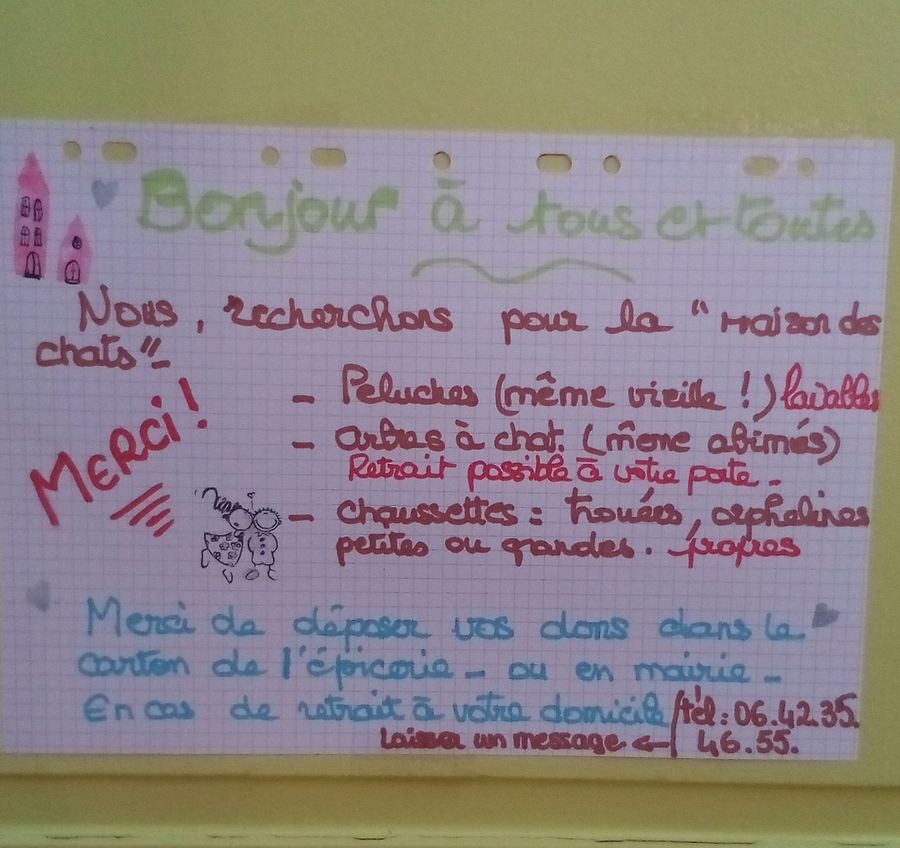 Bonjour à tous et toutes
Nous, recherchons pour la "Maison des
chats"-
MERCI!
- Peluches (même vieille !) lavables
- arbres à chat. (même abimés)
Retrait possible à votre porte-
- chaussettes : trouées, orphelines
petites ou grandes. propres
Merci de déposer vos dons dans le
carton de l'épicerie - ou en mairie -
En cas de retrait à votre domicile /tél: 06.42.35.
Laisser un message ← 46.55.